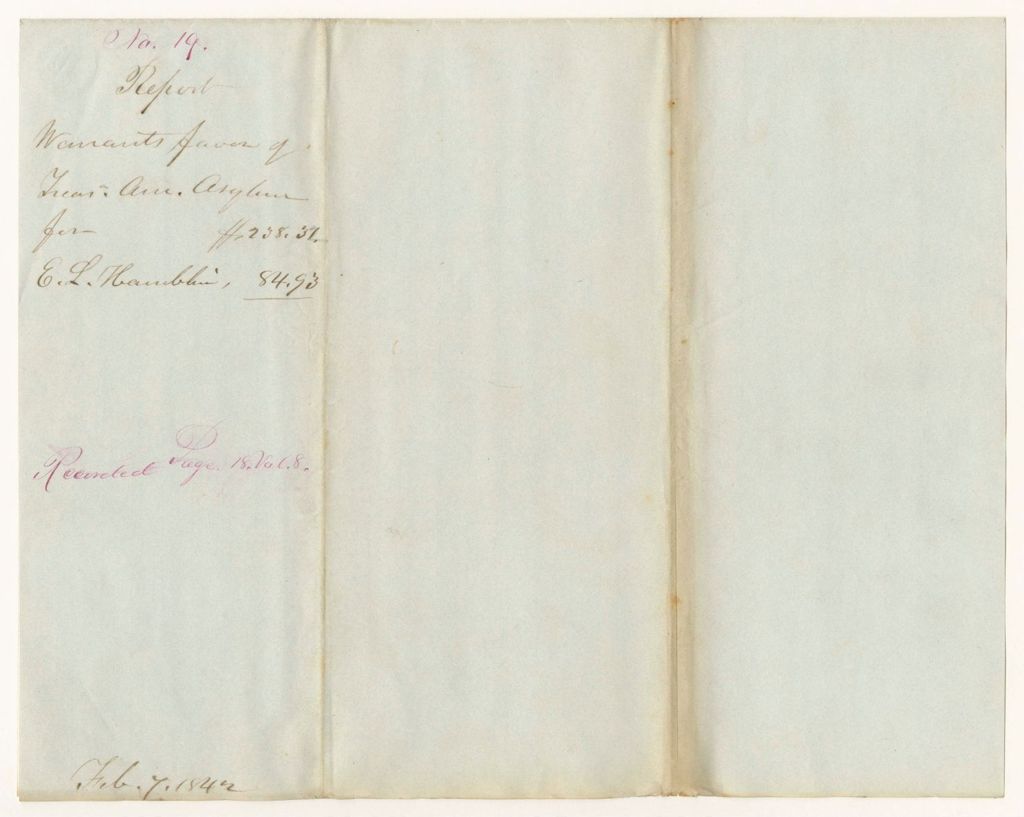 No. 19.
Report
Warrants favor of
Treas. Am. Asylum
for $238.37.
E. L. Hamblin, 84.93
Recorded Page. 18. Vol. 8.
Feb. 7. 1842